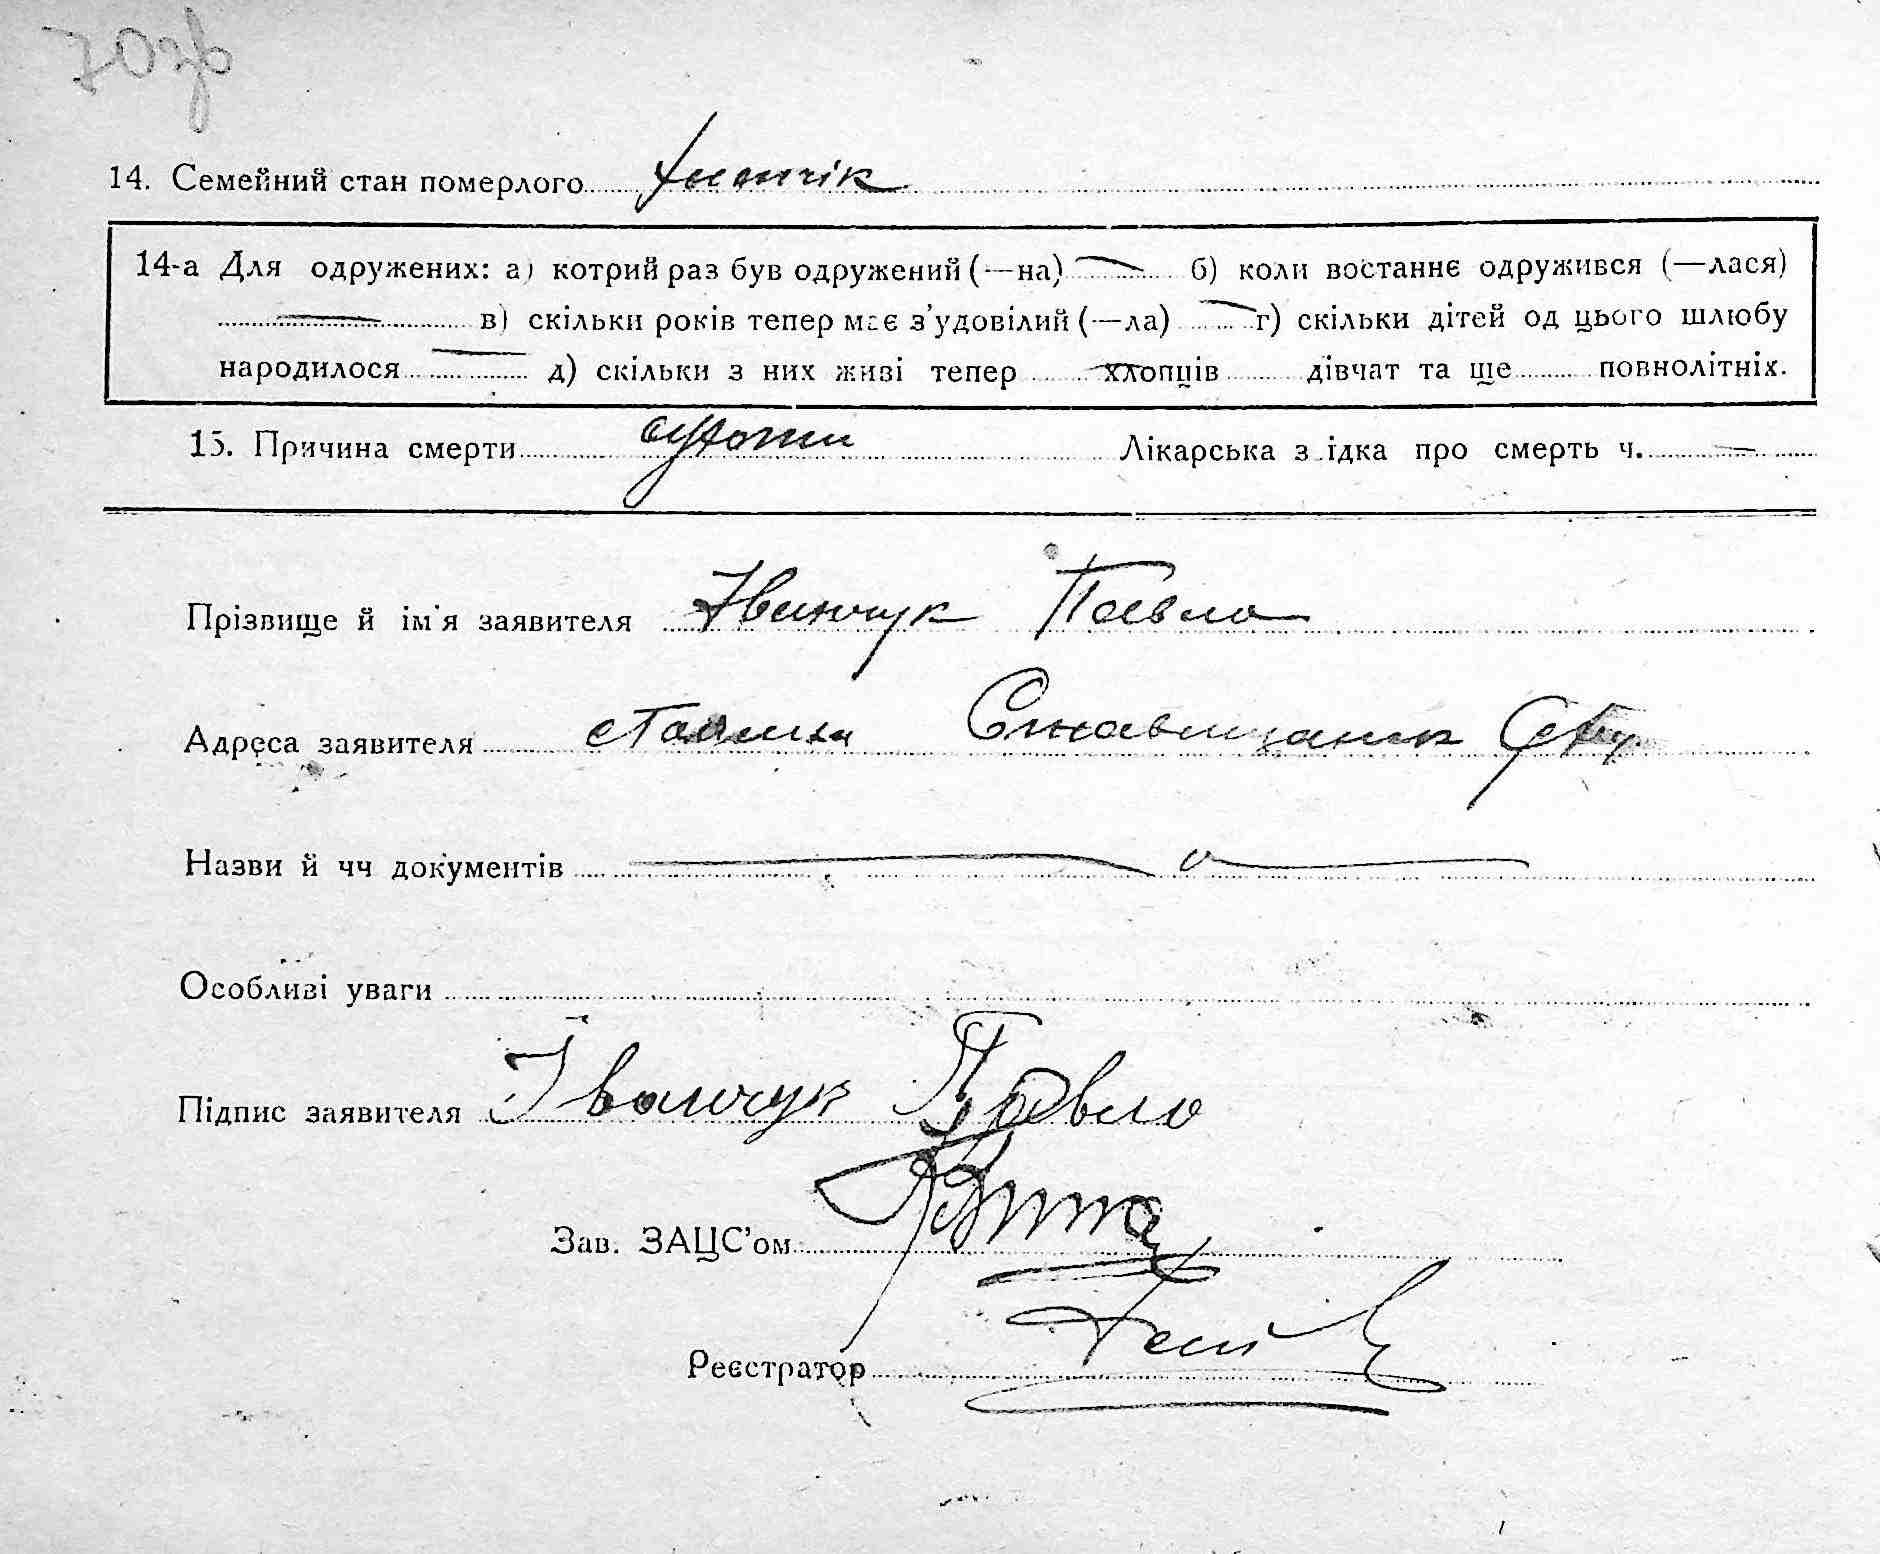 70зв
14. Семейний стан померлого
14-а Для одружених: а) котрий раз був одружений (—на) б) коли востаннє одружився (—лася)
в) скільки років тепер має з'удовілий (—ла) г) скільки дітей од цього шлюбу
народилося д) скільки з них живі тепер хлопців дівчат та ще повнолітніх.
15. Причина смерти Лікарська з ідка про смерть ч. —
Прізвище й ім'я заявителя Іванчук Павло
Адреса заявителя
Назви й чч документів
Особливі уваги
Підпис заявителя Іванчук Павло
Зав. ЗАЦС'ом
Реєстратор